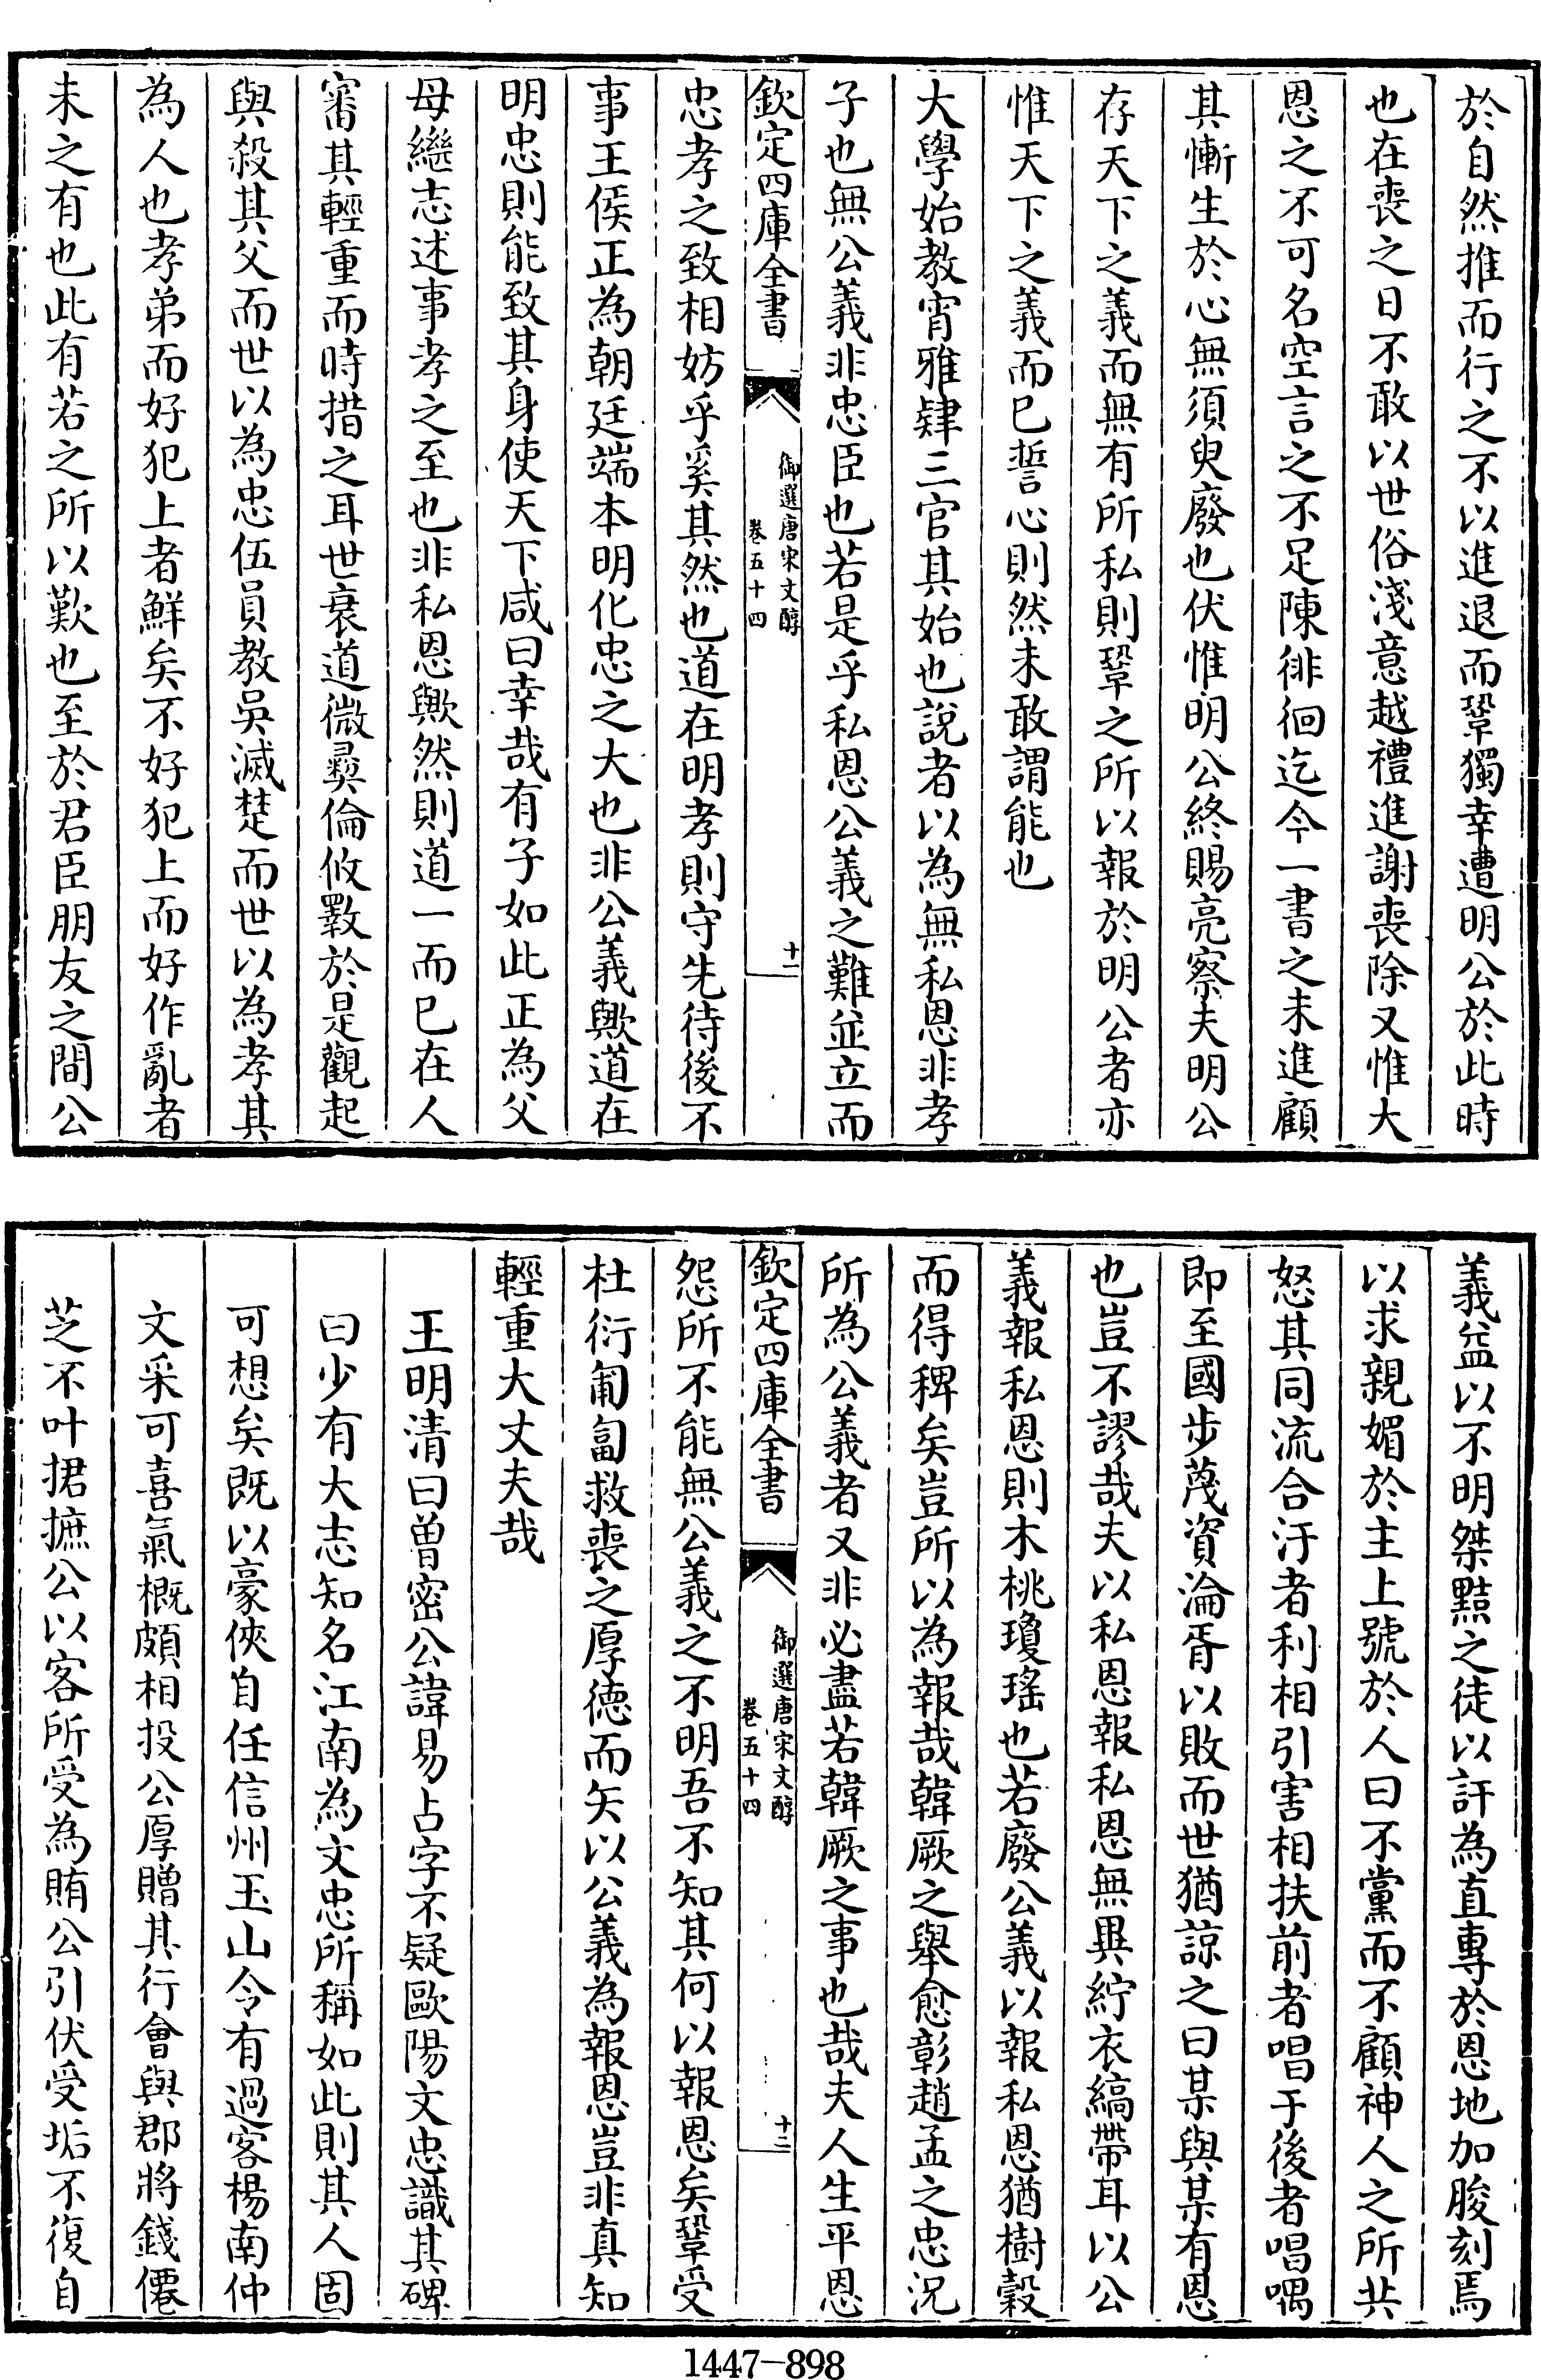 於自然推而行之不以進退而鞏獨幸遭明公於此時
也在喪之日不敢以世俗淺意越禮進謝喪除又惟大
恩之不可名空言之不足陳徘徊迄今一書之未進顧
其慚生於心無須臾廢也伏惟明公終賜亮察夫明公
存天下之義而無有所私則鞏之所以報於明公者亦
惟天下之義而已誓心則然未敢謂能也
大學始教宵雅肄三官其始也說者以為無私恩非孝
子也無公義非忠臣也若是乎私恩公義之難並立而
欽定四庫全書
御選唐宋文醇
卷五十四
十一
忠孝之致相妨乎奚其然也道在明孝則守先待後不
事王侯正為朝廷端本明化忠之大也非公義歟道在
明忠則能致其身使天下咸曰幸哉有子如此正為父
母繼志述事孝之至也非私恩歟然則道一而已在人
審其輕重而時措之耳世衰道微彞倫攸斁於是觀起
與殺其父而世以為忠伍員教吳滅楚而世以為孝其
為人也孝弟而好犯上者鮮矣不好犯上而好作亂者
未之有也此有若之所以歎也至於君臣朋友之間公
義益以不明桀黠之徒以訐為直專於恩地加朘刻焉
以求親媚於主上號於人曰不黨而不顧神人之所共
怒其同流合汙者利相引害相扶前者唱于後者唱喁
即至國步蔑資淪胥以敗而世猶諒之曰某與某有恩
也豈不謬哉夫以私恩報私恩無異紵衣縞帶耳以公
義報私恩則木桃瓊瑤也若廢公義以報私恩猶樹穀
而得稗矣豈所以為報哉韓厥之舉愈彰趙孟之忠況
所為公義者又非必盡若韓厥之事也哉夫人生平恩
欽定四庫全書
御選唐宋文醇
卷五十四
十二
怨所不能無公義之不明吾不知其何以報恩矣鞏受
杜衍匍匐救喪之厚德而矢以公義為報恩豈非真知
輕重大丈夫哉
王明清曰曾密公諱易占字不疑歐陽文忠識其碑
曰少有大志知名江南為文忠所稱如此則其人固
可想矣既以豪俠自任信州玉山令有過客楊南仲
文采可喜氣概頗相投公厚贈其行會與郡將錢僊
芝不叶捃摭公以客所受為賄公引伏受垢不復自
1447-898